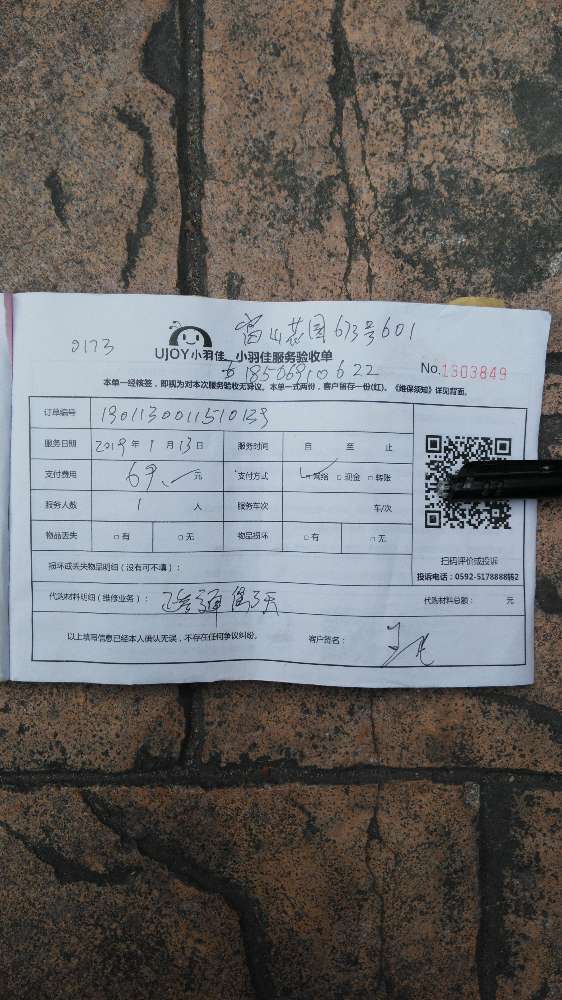 富山花园673号601
0173
UJOY小羽佳 小羽佳服务验收单
No.1303849
本单一经核签，即视为对本次服务验收无异议。本单一式两份，客户留存一份(红)。《维保须知》详见背面。
订单编号
服务日期 2019 年 1 月 13 日 服务时间 自 至 止
支付费用 69. 元 支付方式 □ 网络 □ 现金 □ 转账
服务人数 1 人 服务车次 车/次
物品丢失 □ 有 □ 无 物品损坏 □ 有 □ 无
扫码评价或投诉
投诉电话：0592-5178888转2
损坏或丢失物品明细（没有可不填）：
代购材料明细（维修业务）： 代购材料总额： 元
以上填写信息已经本人确认无误，不存在任何争议纠纷。 客户签名：